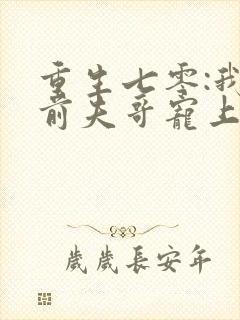 重生七零:我
前夫哥宠上
歲歲長安年